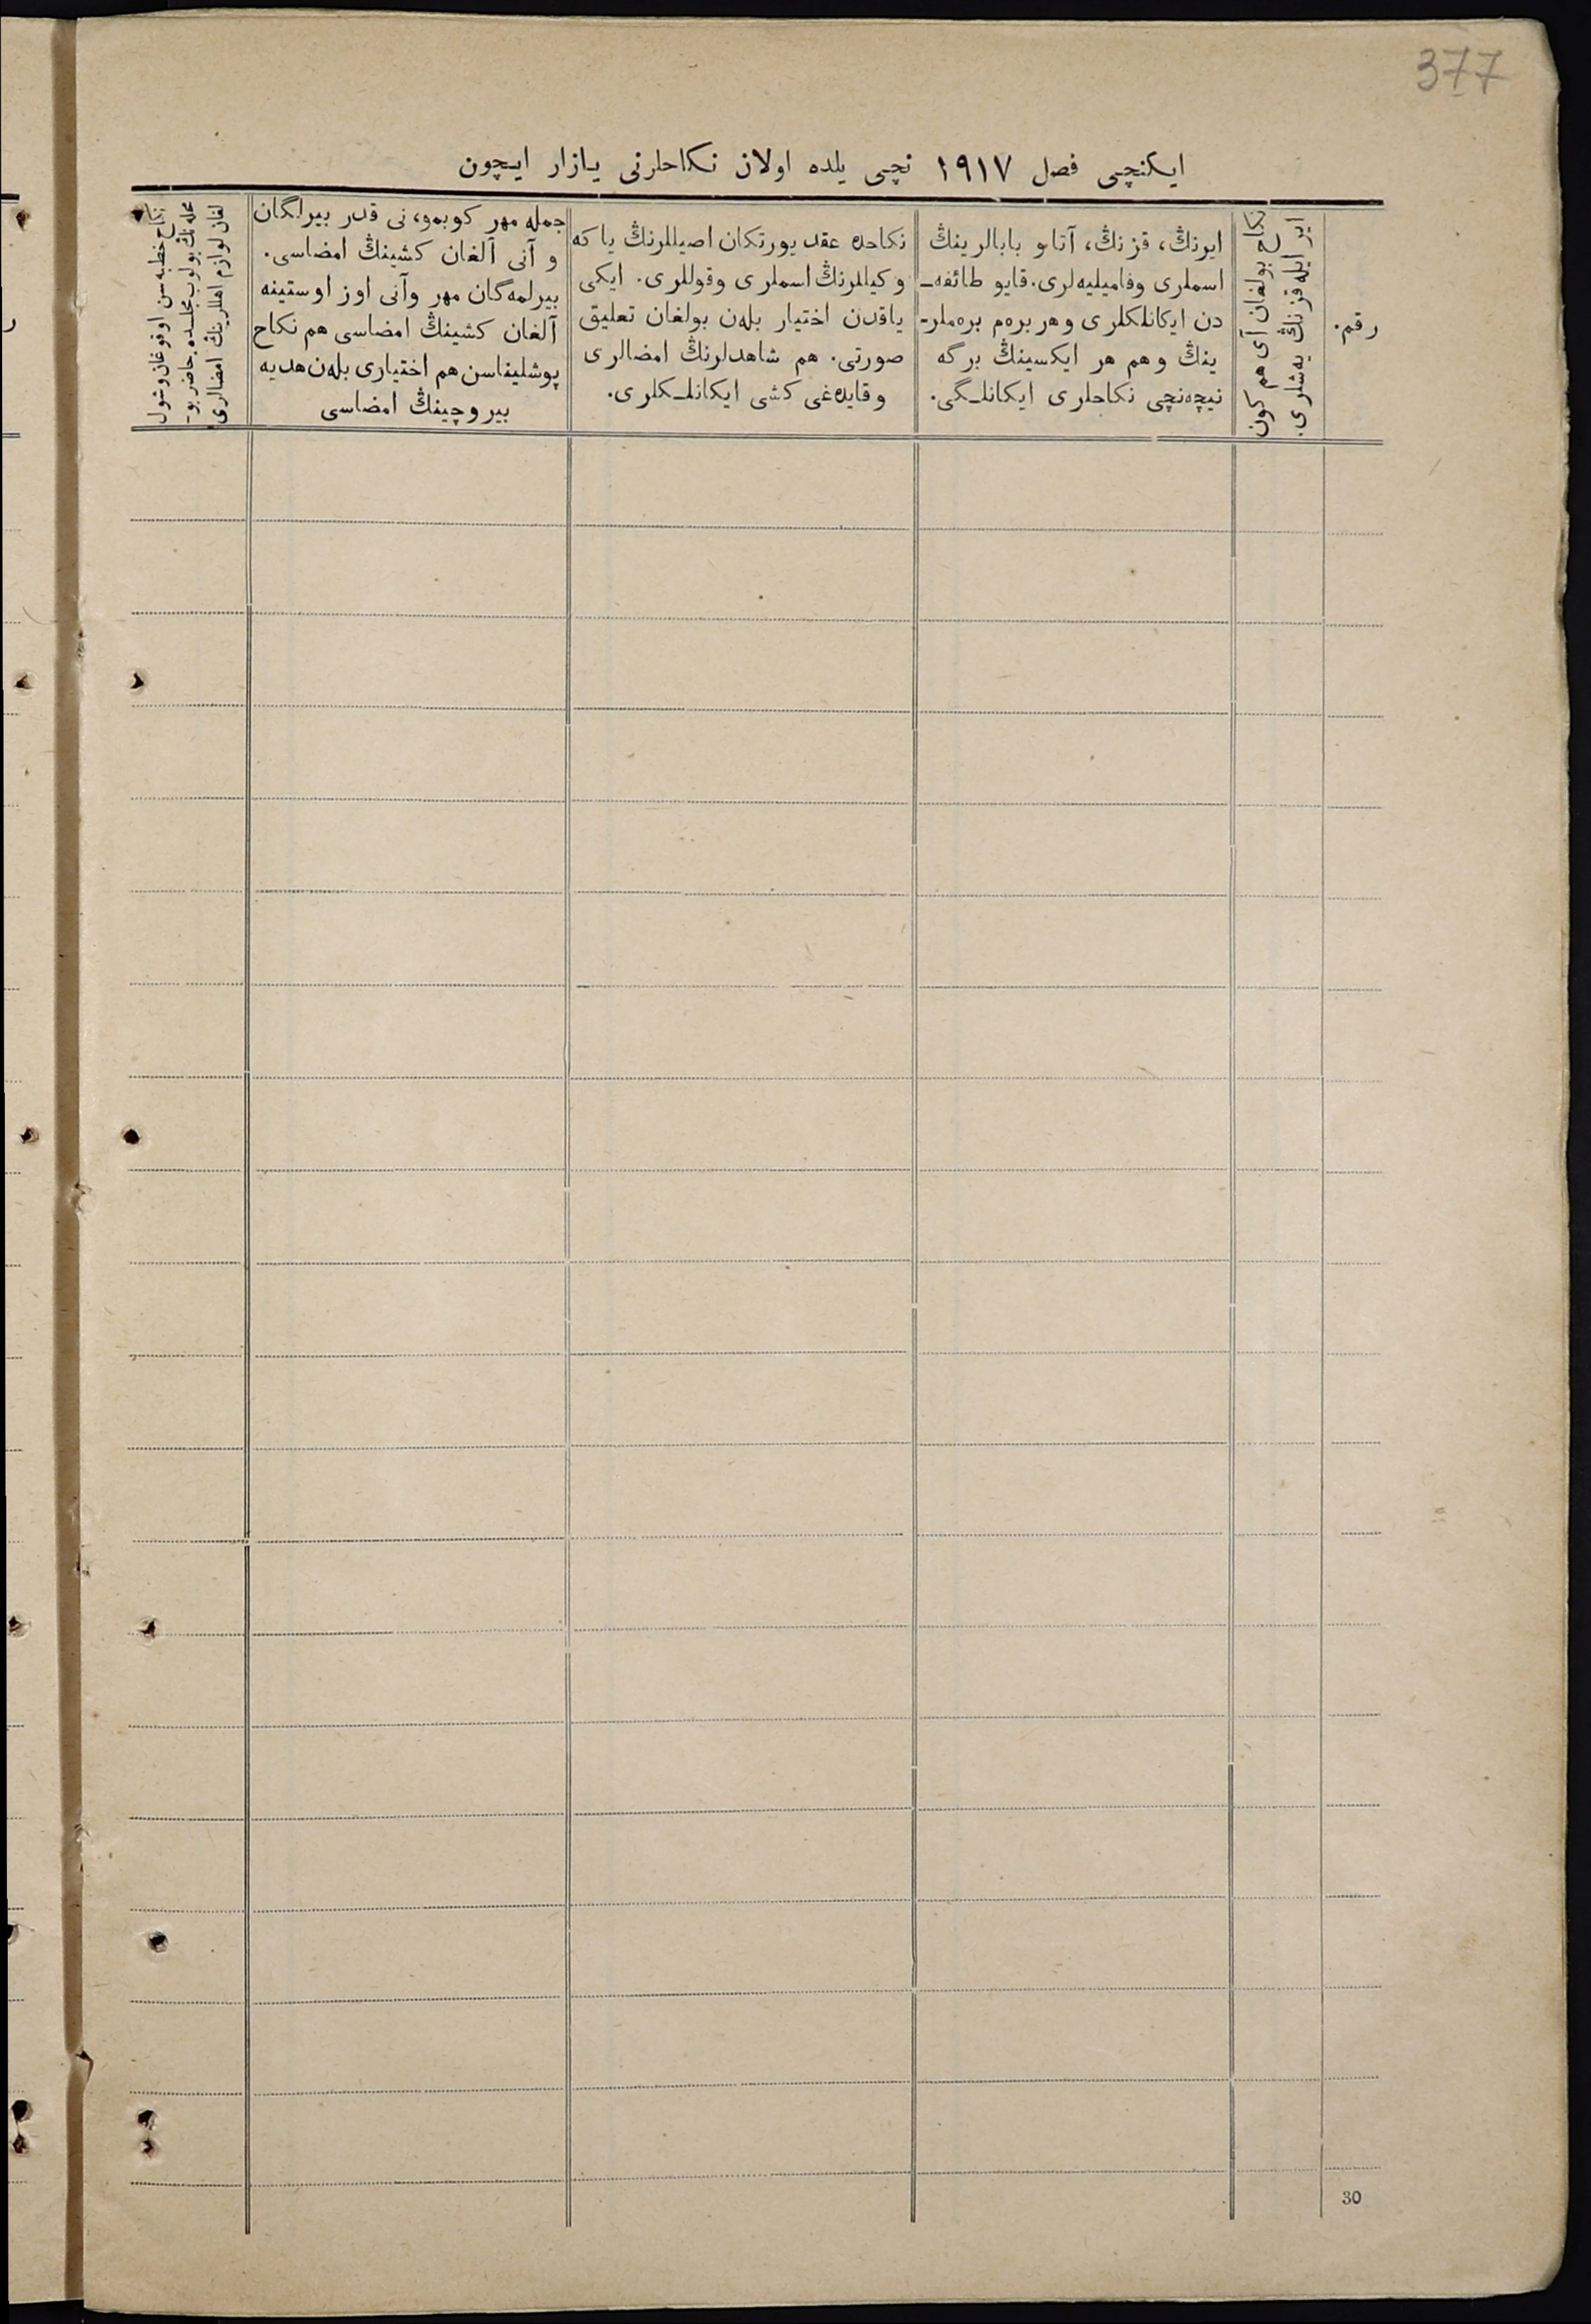 377
ایکنچی فصل ١٩١٧ نچی یلده اولان نکاحلرنی یازار ایچون
رقم.
نکاح بولغان آی هم کون
ایر ایله قزنڭ یه‌شلری.
ایرنڭ، قزنڭ، آتا و بابالرینڭ
اسملری وفامیلیه‌لری. قایو طائفه‌ـ
دن ایکانلکلری وهر بره‌م بره‌ملرـ
ینڭ وهم هر ایکسینڭ برگه
نیچه‌نچی نکاحلری ایکانلـگی.
نکاحده عقد یورتکان اصیللرنڭ یا که
وکیللرنڭ اسملری وقوللری. ایکی
یاقدن اختیار بله‌ن بولغان تعلیق
صورتی. هم شاهدلرنڭ امضالری
وقایده‌غی کشی ایکانلـکلری.
جمله مهر کوبمو، نی قدر بیرلگان
و آنی آلغان کشینڭ امضاسی.
بیرلمه‌گان مهر وآنی اوز اوستینه
آلغان کشینڭ امضاسی هم نکاح
پوشلیناسن هم اختیاری بله‌ن هدیه
بیروچینڭ امضاسی
نکاح خطبه‌سن اوقوغان وشول
محله‌نڭ بولوب مجلسده حاضر بوـ
لغان لوازم اهللرینڭ امضالری
30